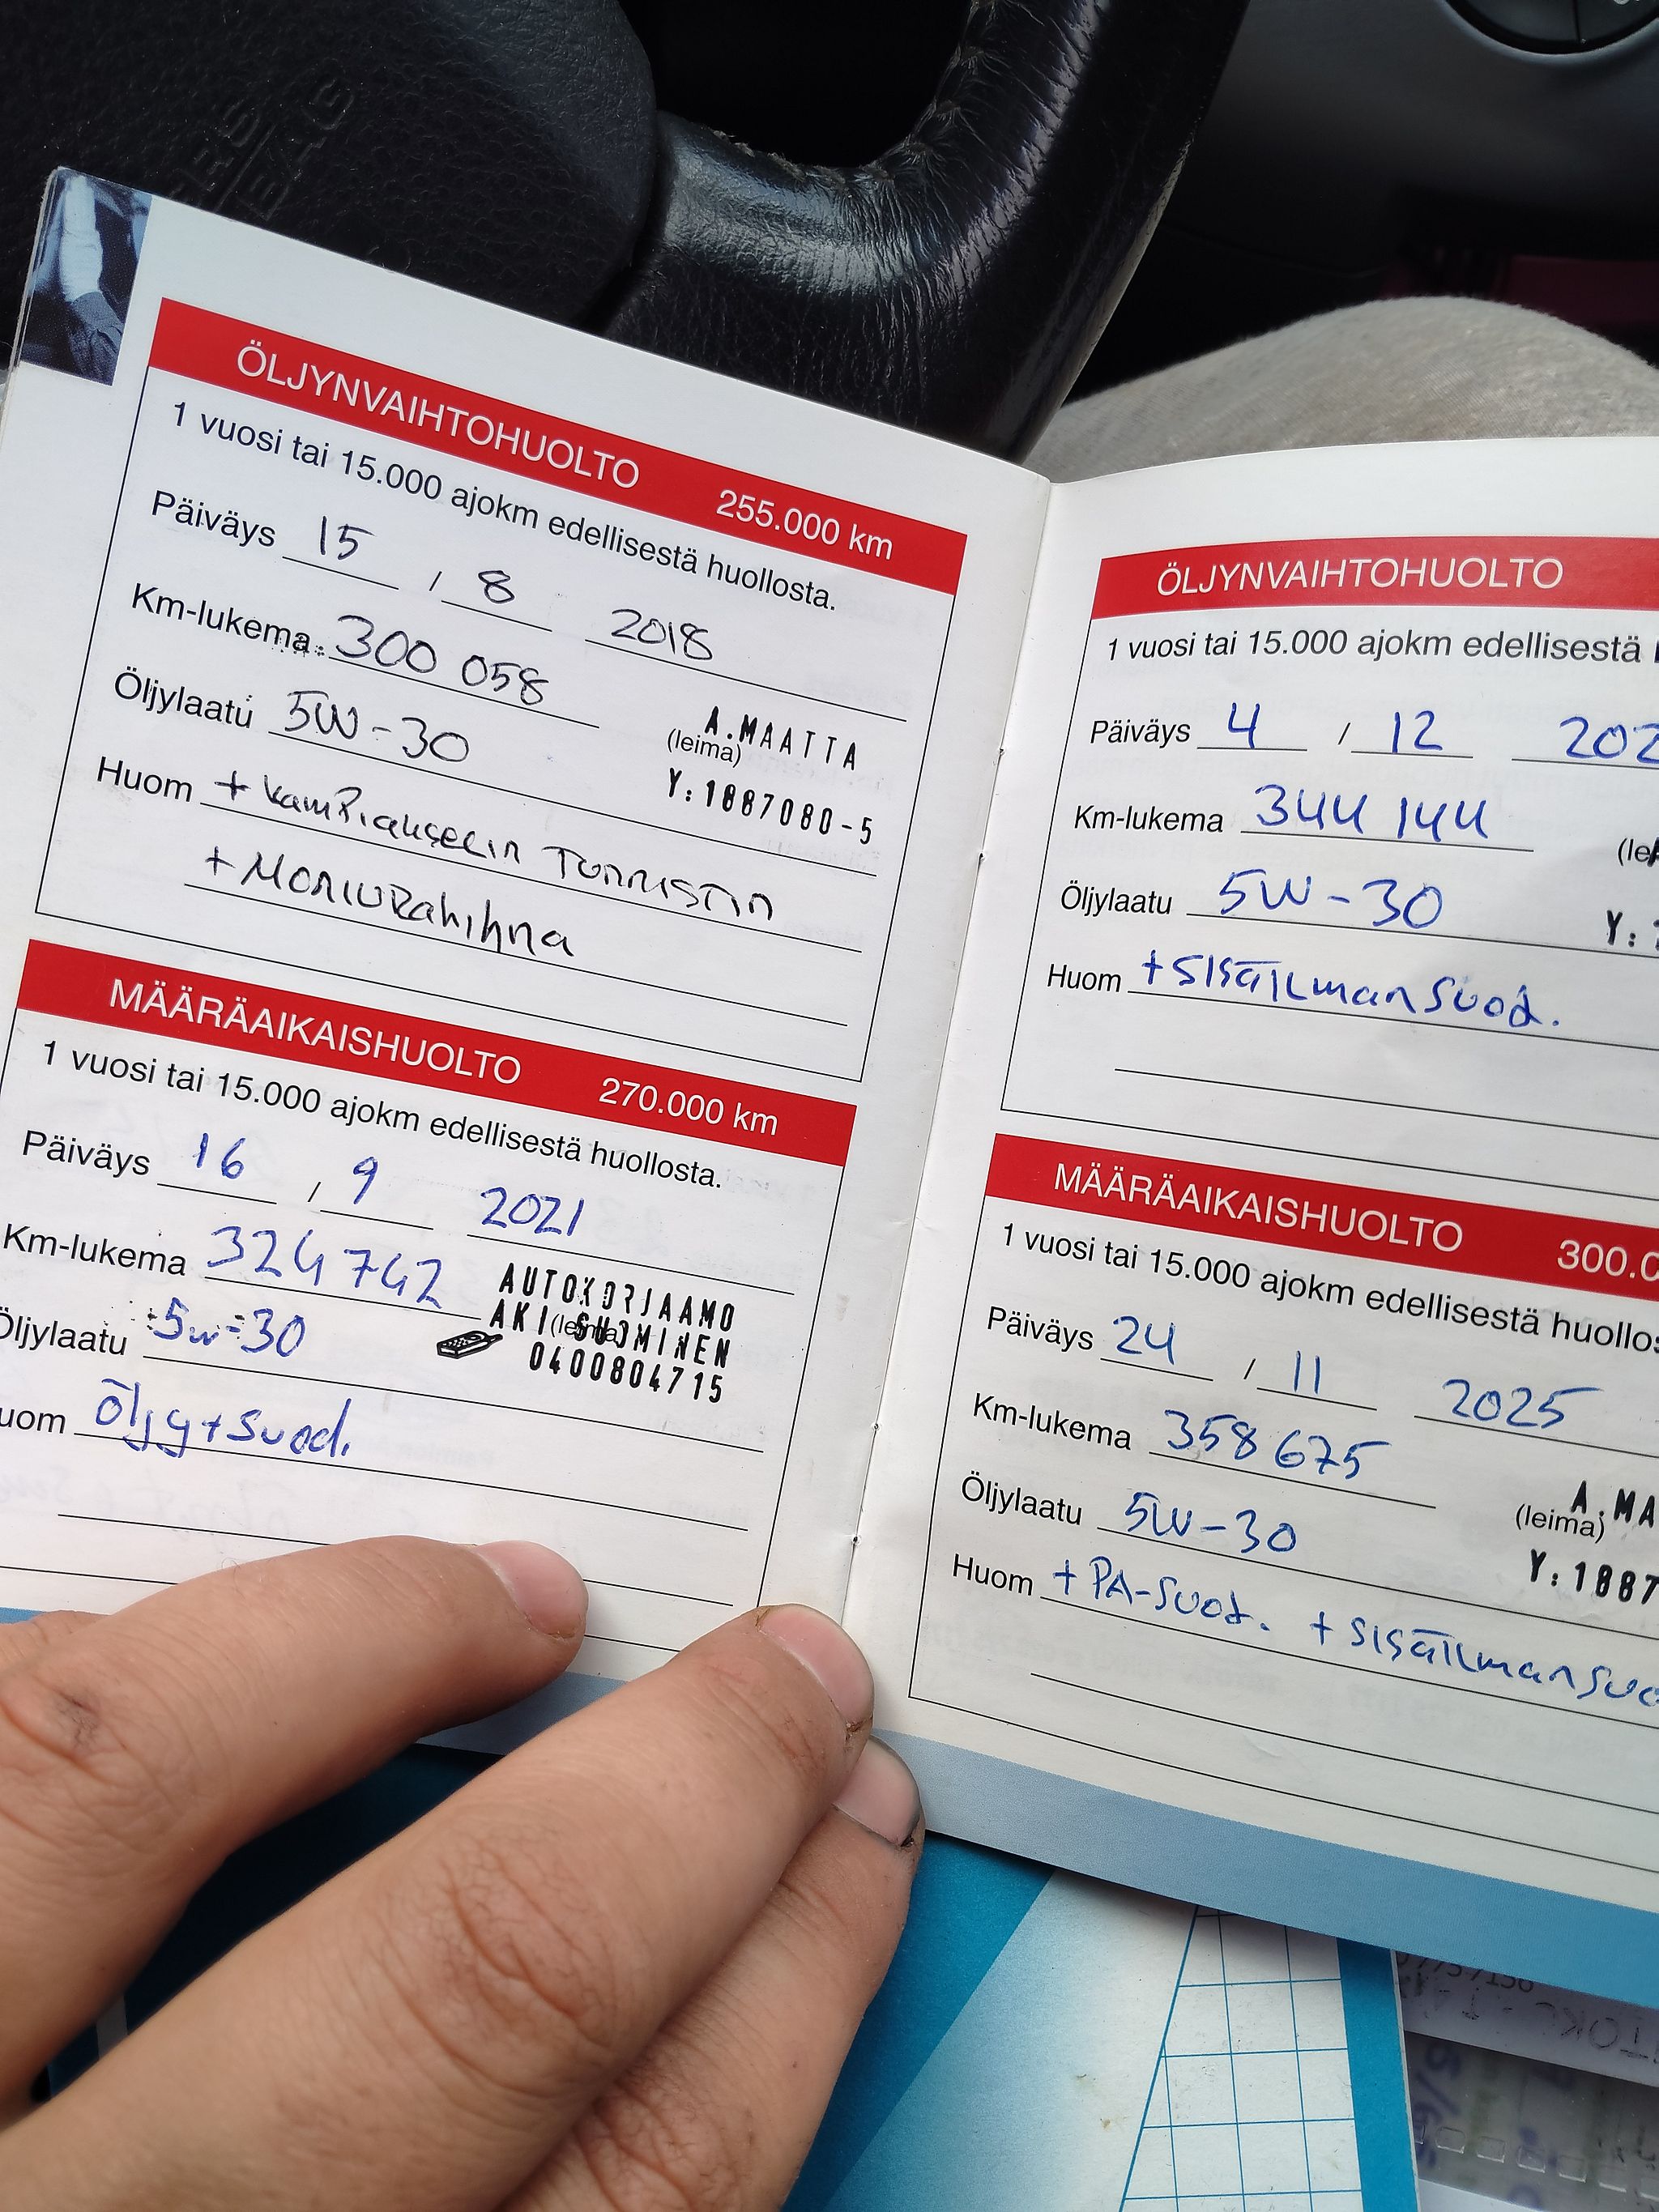 SRS
BAG
ÖLJYNVAIHTOHUOLTO 255.000 km
1 vuosi tai 15.000 ajokm edellisestä huollosta.
Päiväys 15 / 8 2018
Km-lukema 300 058
Öljylaatu 5W-30
A.MAATTA
(leima)
Y:1887080-5
Huom + Kampiakselin Tunnistin
+ Moniurahihna
MÄÄRÄAIKAISHUOLTO 270.000 km
1 vuosi tai 15.000 ajokm edellisestä huollosta.
Päiväys 16 / 9 2021
Km-lukema 324 742
Öljylaatu 5w-30
AUTOKORJAAMO
AKI SUOMINEN
(leima)
0400804715
uom öljy+suod.
ÖLJYNVAIHTOHUOLTO
1 vuosi tai 15.000 ajokm edellisestä
Päiväys 4 / 12 202
Km-lukema 344 144
Öljylaatu 5W-30
Y:
Huom +sisäilmansuod.
MÄÄRÄAIKAISHUOLTO 300.0
1 vuosi tai 15.000 ajokm edellisestä huollos
Päiväys 24 / 11 2025
Km-lukema 358 675
Öljylaatu 5W-30
A.MA
(leima)
Y:1887
Huom + PA-suod. + sisäilmansuo